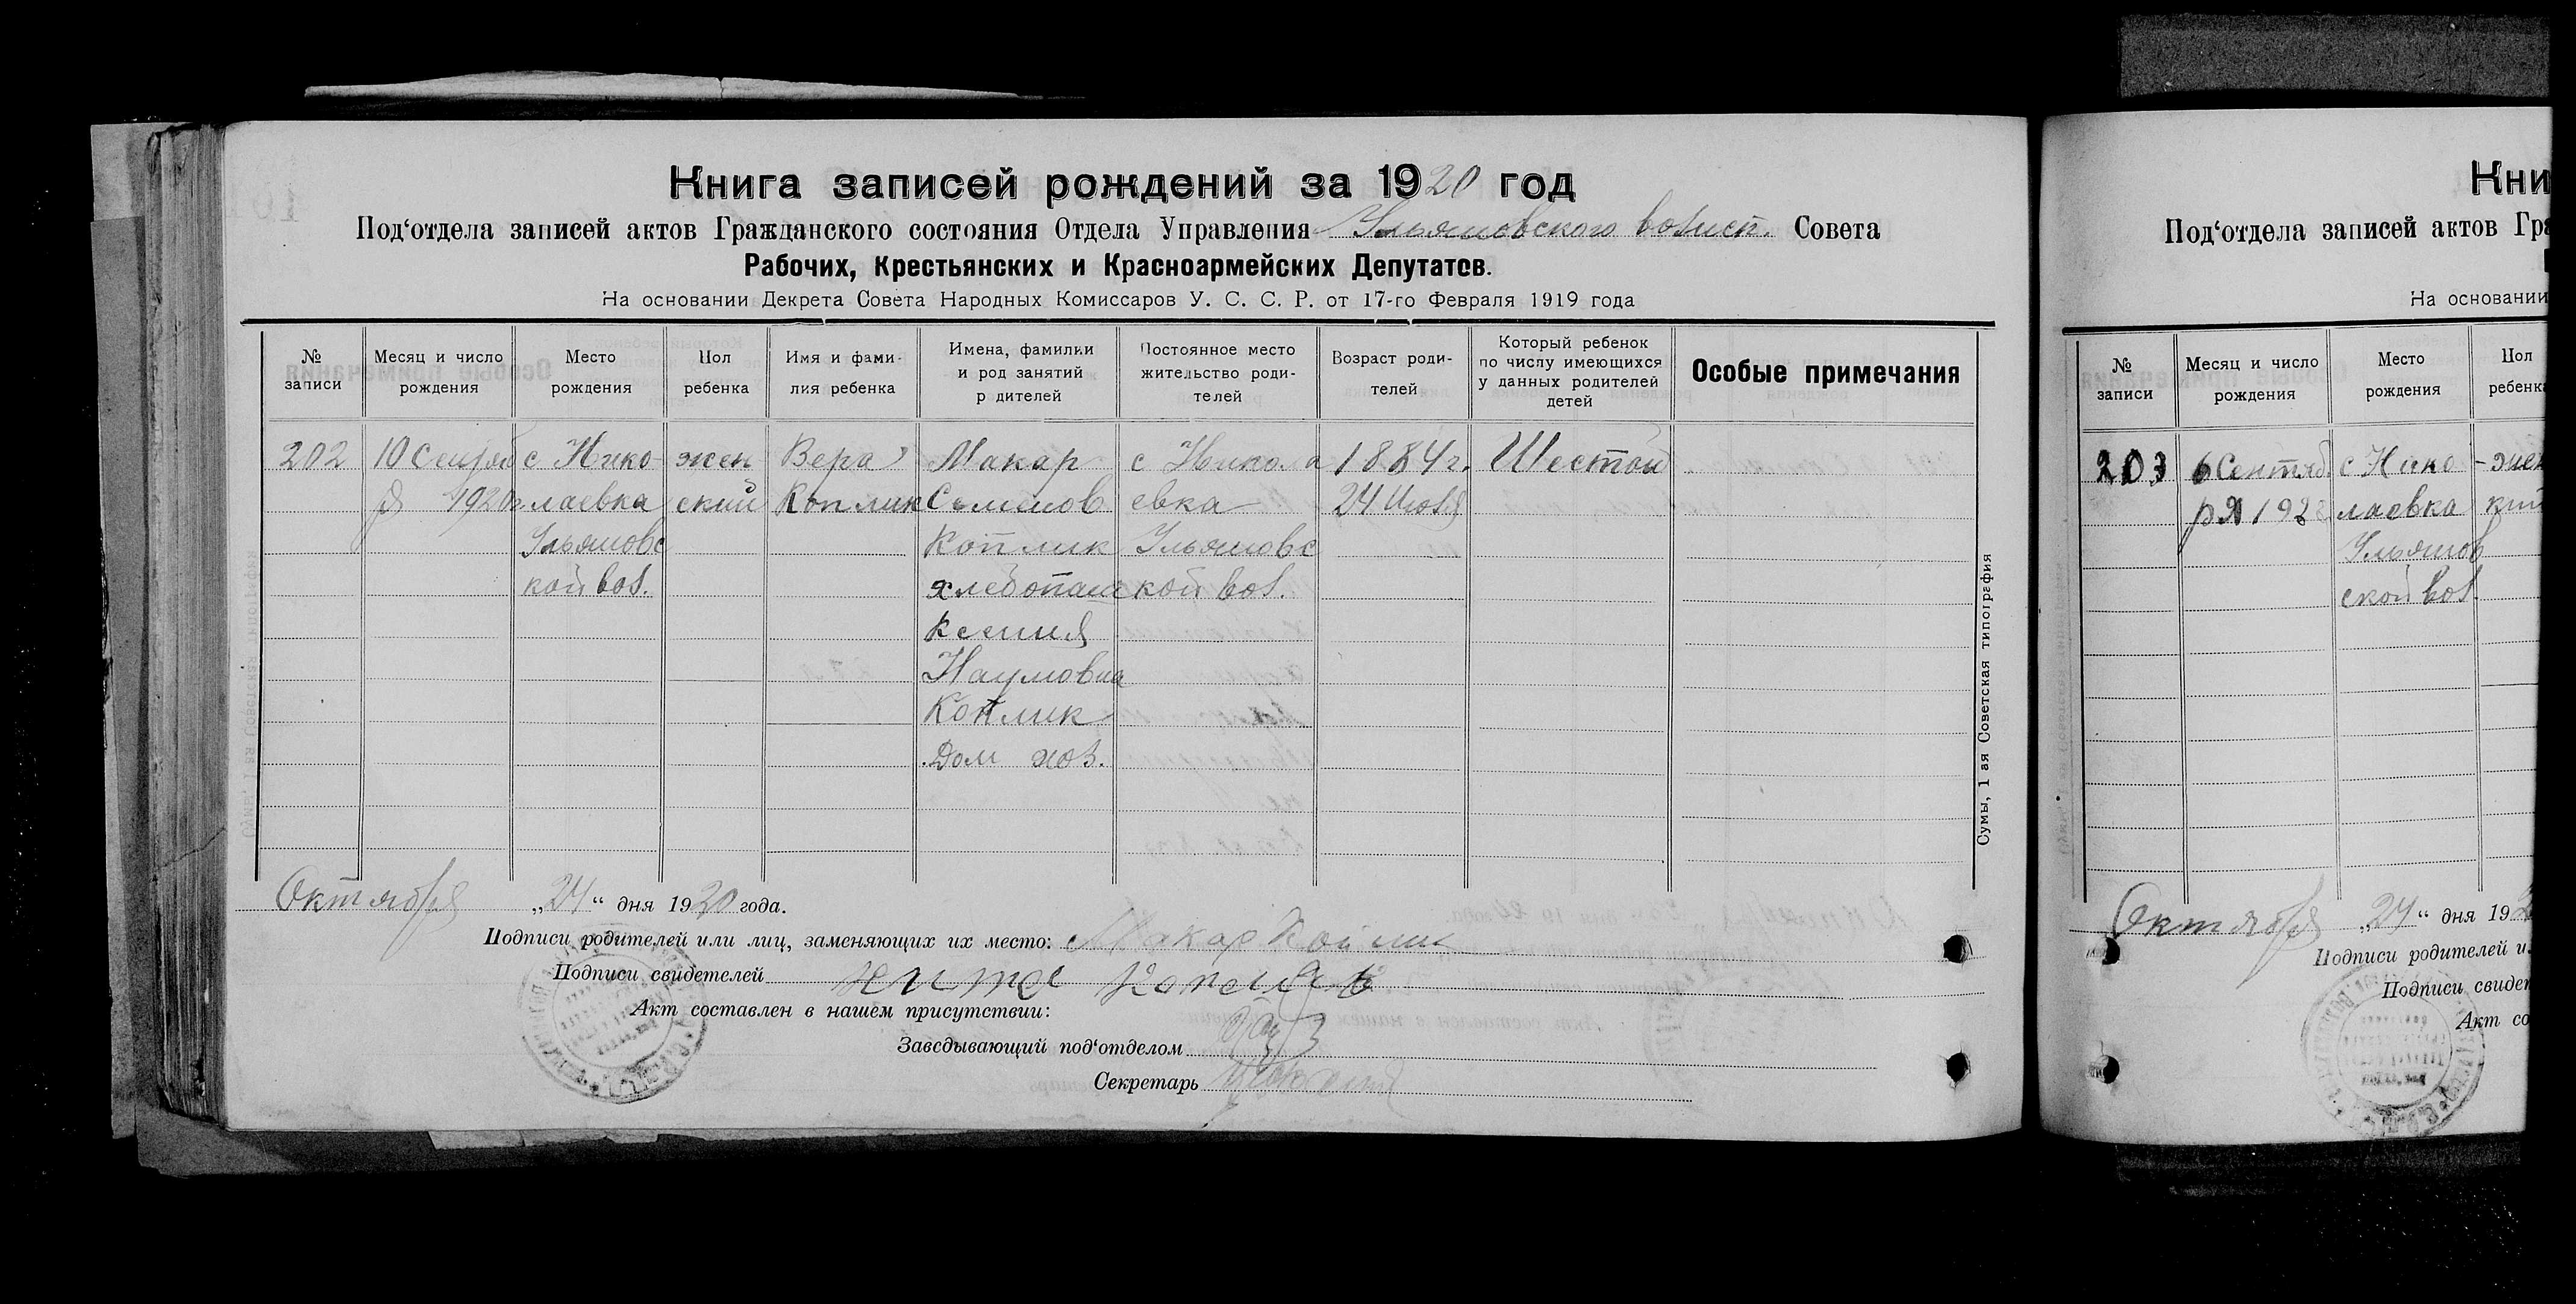 Книга записей рождений за 1920 год
Под‘отдела записей актов Гражданского состояния Отдела Управления Ульяновского волисп. Совета
Рабочих, Крестьянских и Красноармейских Депутатов.
На основании Декрета Совета Народных Комиссаров У. С. С. Р. от 17-го Февраля 1919 года
№ записи
Месяц и число рождения
Место рождения
Пол ребенка
Имя и фами-
лия ребенка
Имена, фамилии
и род занятий
р дителей
Постоянное место
жительство роди-
телей
Возраст роди-
телей
Который ребенок
по числу имеющихся
у данных родителей
детей
Особые примечания
202
10 Сентяб
ря 1920г.
с Нико
лаевка
Ульяновс
кой вол.
жен
ский
Вера
Коплик
Макар
Семенов
Коплик
хлебопаш
Ксения
Наумовна
Коплик
Дом хоз.
с Никола
евка
Ульяновс
кой вол.
1884г.
24 Июля
Шестой
Сумы, 1 ая Советская типография
Октября „24“ дня 1920 года.
Подписи родителей или лиц, заменяющих их место: Макар Коплик
Подписи свидетелей
Акт составлен в нашем присутствии:
Заведывающий под‘отделом
Секретарь
Кни
Под‘отдела записей актов Гра
На основании
№ записи
Месяц и число
рождения
Место
рождения
Пол
ребенк
203
6 Сентяб
ря 192
с Нико
лаевка
Ульянов
ской вол.
Октября „24“ дня 192
Подписи родителей и
Подписи свидет
Акт со